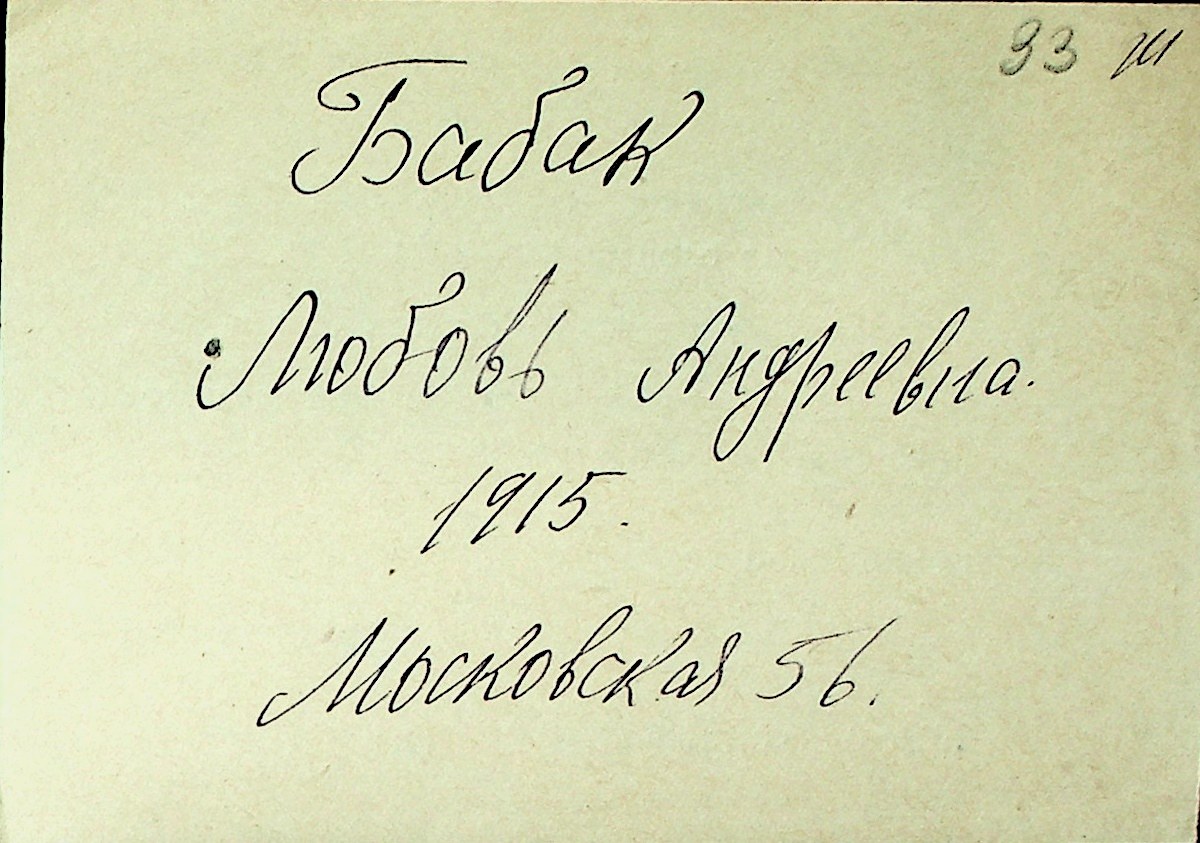 93 ж
Бабак
Любовь Андреевна.
1915.
Московская 56.